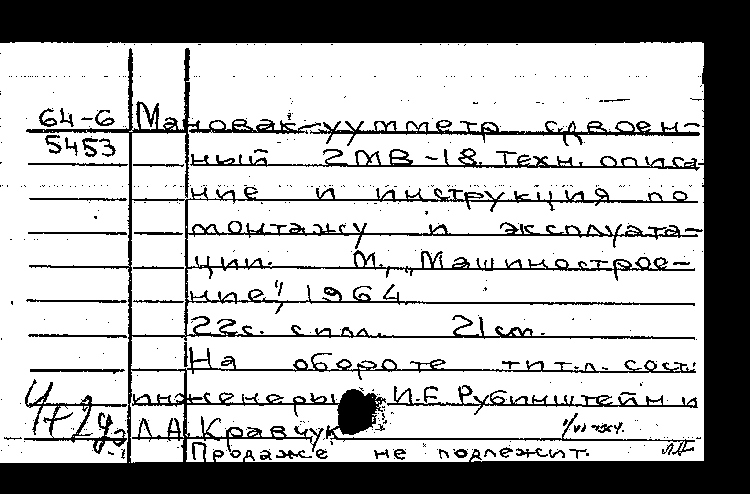 64-6 Мановак-уумметр сдвоен-
5453 ный 2МВ-18. Техн. описа-
ние и инструкция по
монтажу и эксплуата-
ции. М., „Машинострое-
ние", 1964
22с. с илл. 21 см.
На обороте тит.л. сост:
инженеры И.Е. Рубинштейн и
Л.А. Кравчук
Продаже не подлежит.